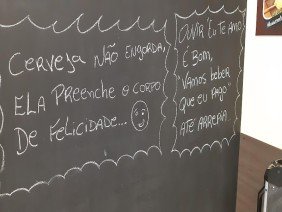 CERVEJA NÃO ENGORDA,
ELA PREENCHE O CORPO
DE FELICIDADE...
OUVIR "EU TE AMO"
É BOM,
VAMOS BEBER
QUE EU PAGO"
ATÉ ARREPIA.